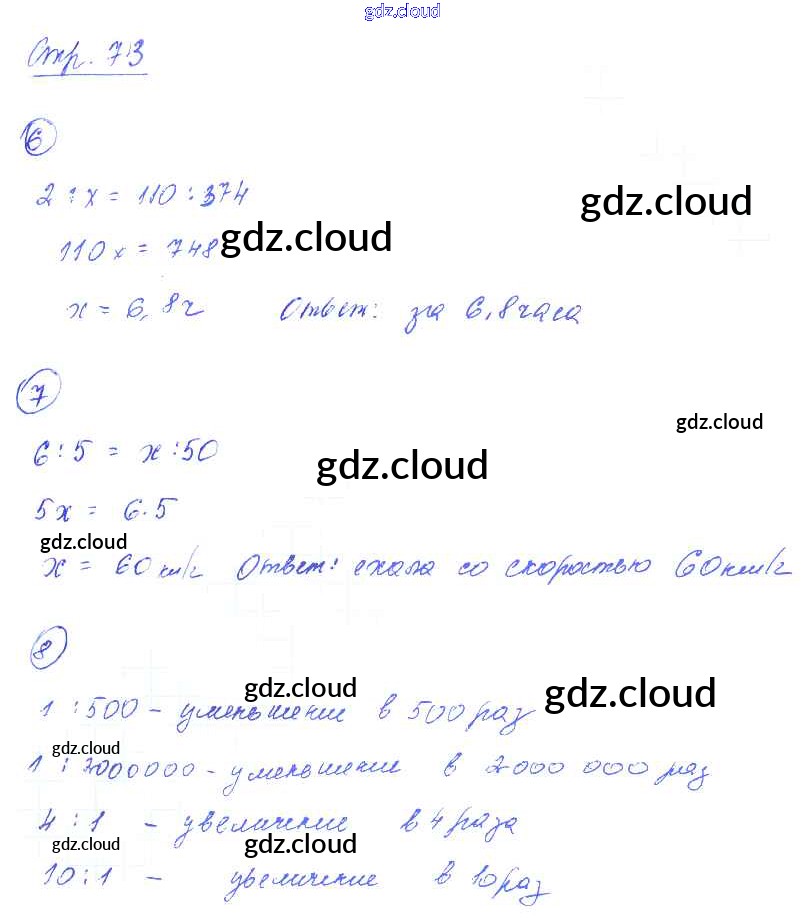 gdz.cloud
Стр. 73
6
gdz.cloud
2 : x = 110 : 374
110x = 748
gdz.cloud
x = 6,8ч Ответ: за 6,8 часа
7
gdz.cloud
6 : 5 = x : 50
gdz.cloud
5x = 6.5
gdz.cloud
x = 60 км/ч Ответ: ехала со скоростью 60 км/ч
8
gdz.cloud
gdz.cloud
1 : 500 - уменьшение в 500 раз
gdz.cloud
1 : 2000000 - уменьшение в 2000 000 раз
4 : 1 - увеличение в 4 раза
gdz.cloud
gdz.cloud
10 : 1 - увеличение в 10 раз